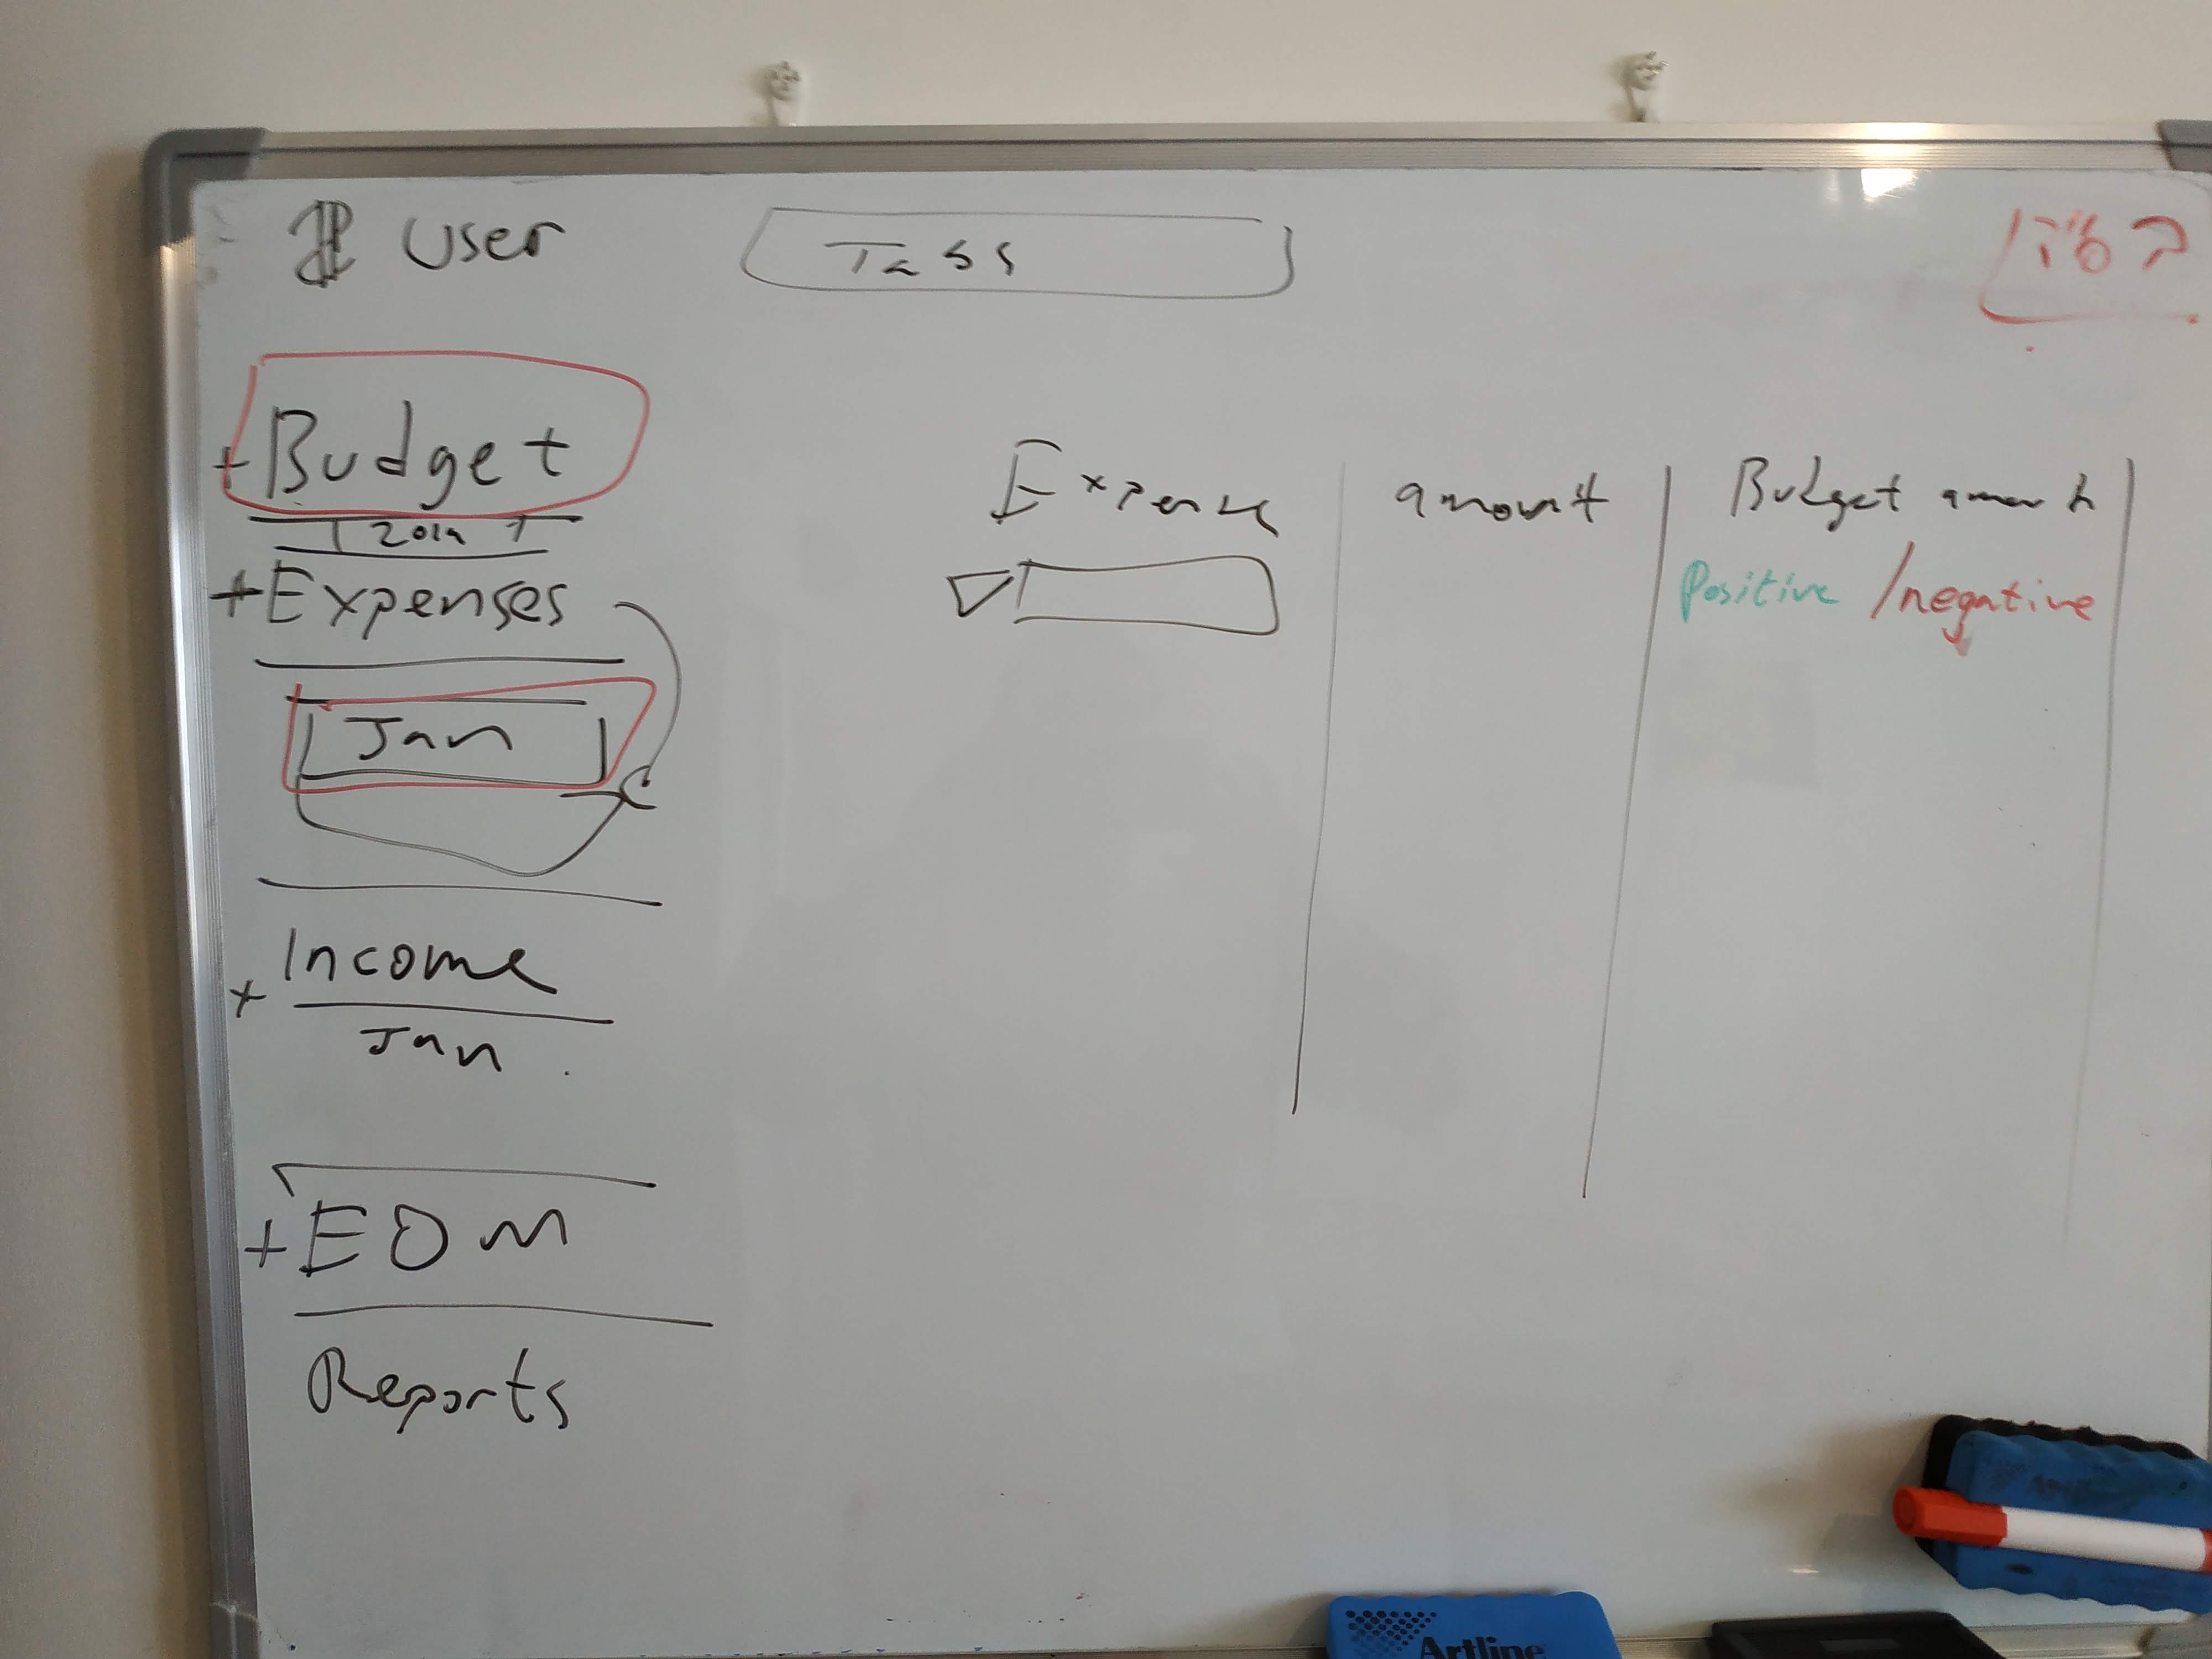 User
+ Budget
+ Expenses
Jan
Income
+
Jan
+ EOM
Reports
Expense
amount
Budget amount
Positive / negative
Artline